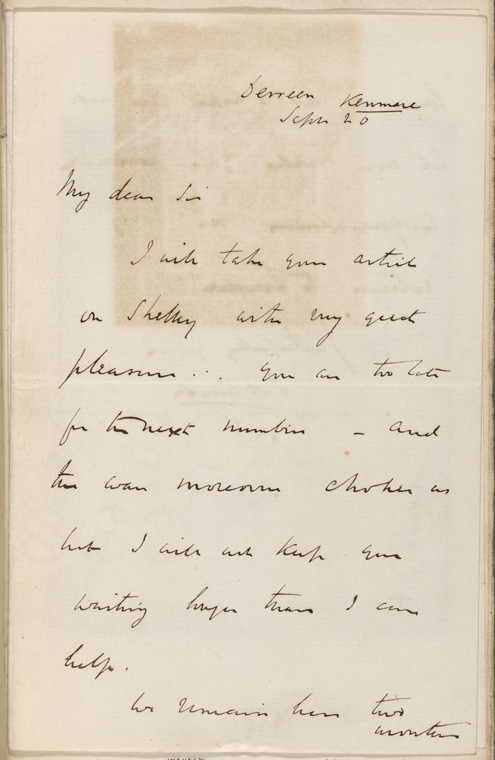 Derreen Kenmare
Sept 20
My dear Sir
I will take your article
on Shelley with very great
pleasure... You are too late
for the next number – and
the war moreover chokes us
but I will not keep you
waiting longer than I can
help.
We remain here two
months